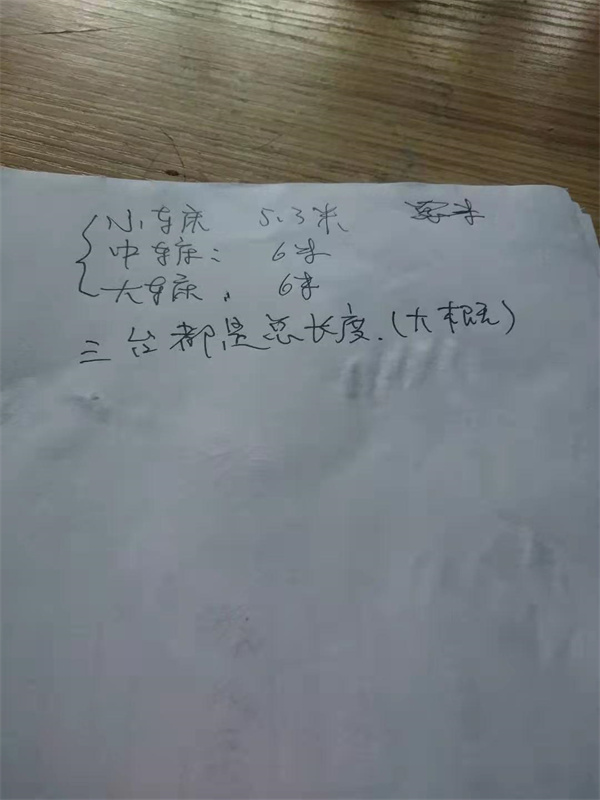 小车床 5.3米
中车床: 6米
大车床. 6米
三台都是总长度.(大概)